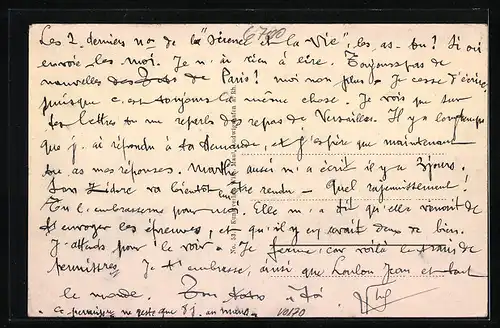 Les 2 derniers nos de la "Science et la Vie", les as-tu ? Si oui
envoie-les moi. Je n'ai rien à lire. Toujours pas de
nouvelles de Paris ! moi non plus. Je cesse d'écrire
puisque c'est toujours la même chose. Je vois que sur
tes lettres tu me reparles des repas de Versailles. Il y a longtemps
que j'ai répondu à ta demande, et j'espère que maintenant
tu as mes réponses. Marthe aussi m'a écrit il y a 3 jours.
Son Isidore va bientôt être rendu - Quel rajeunissement !
Tu l'embrasseras pour moi. Elle m'a dit qu'elle venait de
t'envoyer les épreuves, et qu'il y en avait deux de bien.
J'attends pour le voir. Je ferme, car voilà le train de
permittres. Je t'embrasse, ainsi que Loulou Jean et tout
le monde. Ton à toi
ce permissionnaire ne reste que 8 j. au moins
6780